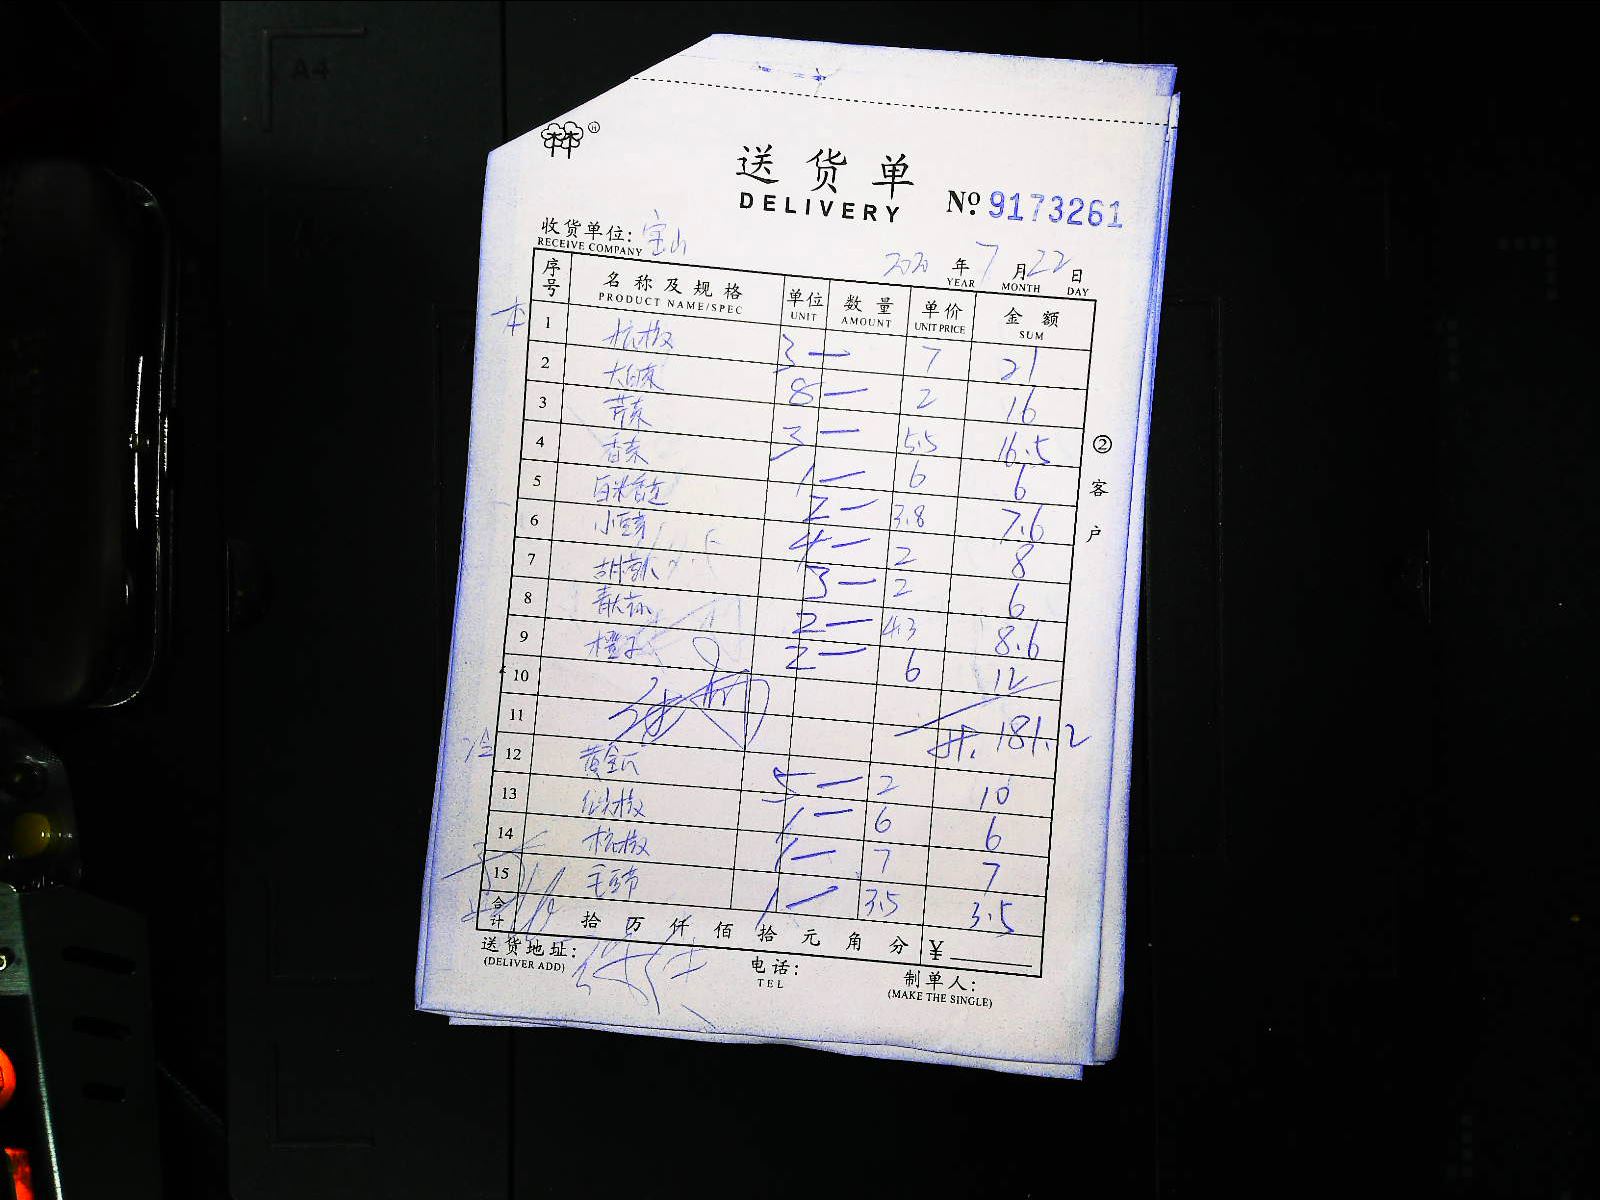 A4
送货单
DELIVERY
No. 9173261
收货单位: 宝山
RECEIVE COMPANY
2020 年 7 月 22 日
YEAR MONTH DAY
序号 名称及规格 单位 数量 单价 金额
PRODUCT NAME/SPEC UNIT AMOUNT UNIT PRICE SUM
本 1 杭椒 3 — 7 21
2 大白菜 8 — 2 16
3 芹菜 3 — 5.5 16.5
4 香菜 1 — 6 6
5 2 — 3.8 7.6
6 小豆芽 4 — 2 8
7 胡萝卜 3 — 2 6
8 2 — 4.3 8.6
9 橙子 2 — 6 12
10
11 共. 181.2
冷 12 黄金瓜 5 — 2 10
13 1 — 6 6
14 杭椒 1 — 7 7
15 毛豆节 1 — 3.5 3.5
合计 拾 万 仟 佰 拾 元 角 分 ¥
送货地址: 电话: 制单人:
(DELIVER ADD) TEL (MAKE THE SINGLE)
② 客户